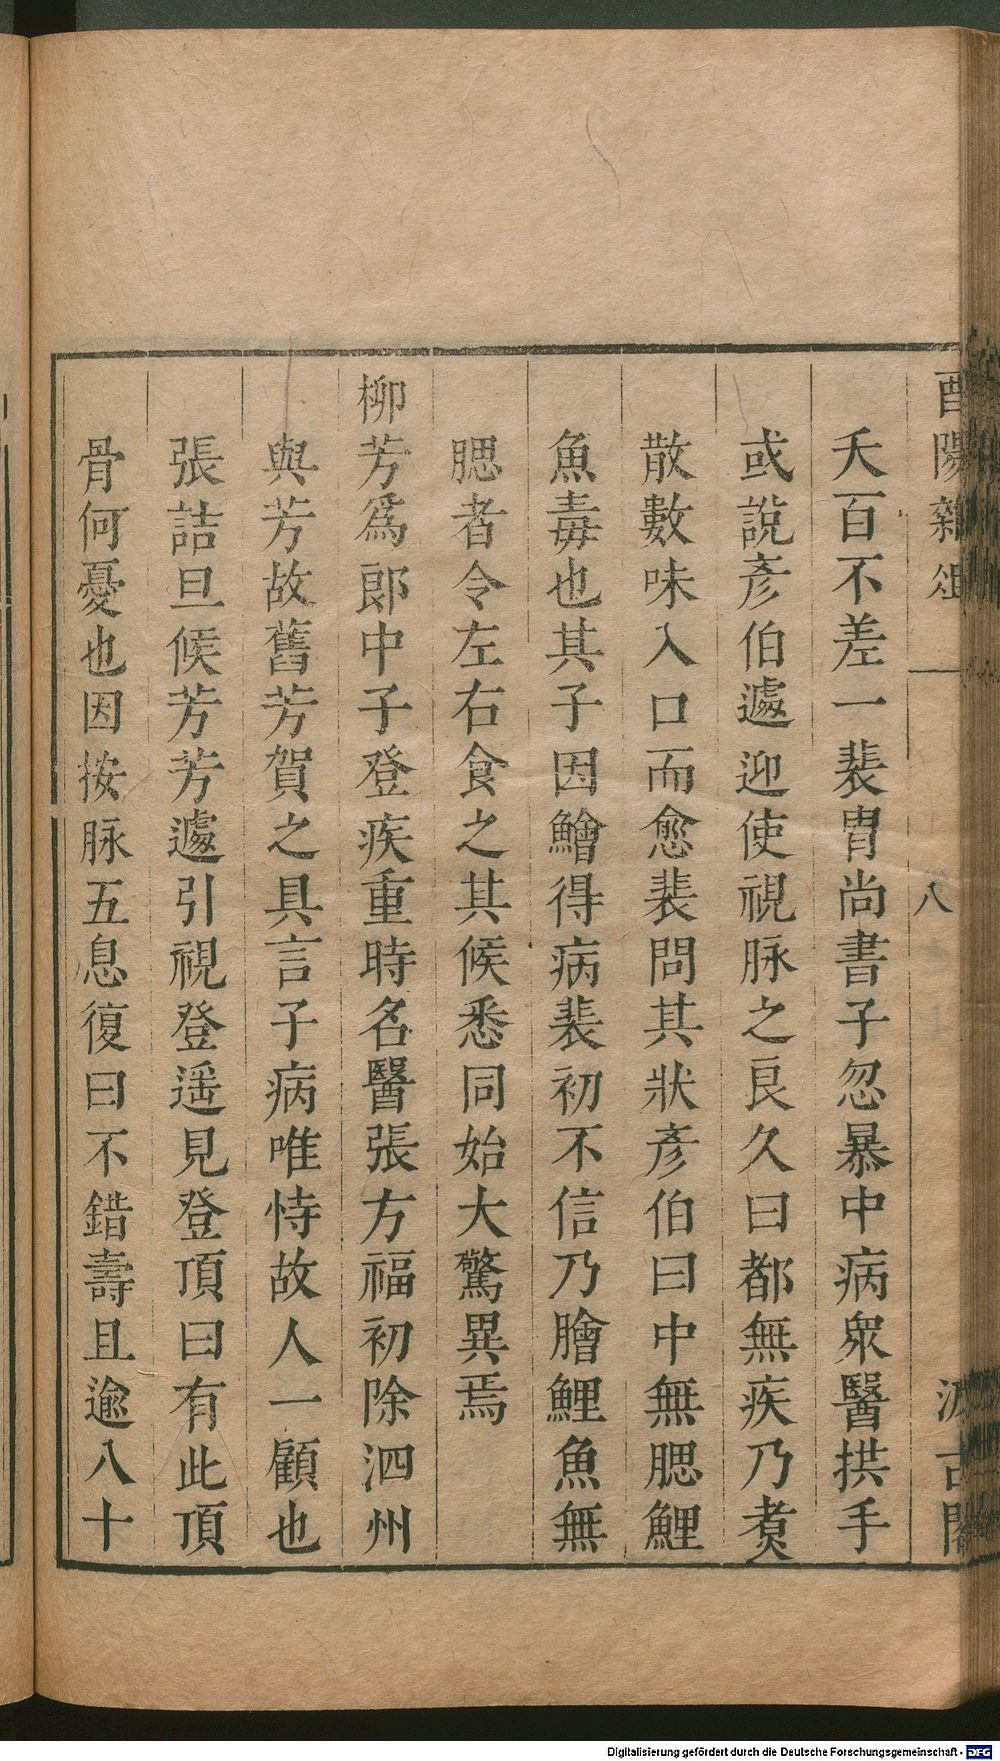 酉陽雜俎
八
汲古閣
夭百不差一裴胄尚書子忽暴中病衆醫拱手
或說彥伯遽迎使視脉之良久曰都無疾乃煑
散數味入口而愈裴問其狀彥伯曰中無腮鯉
魚毒也其子因鱠得病裴初不信乃膾鯉魚無
腮者令左右食之其候悉同始大驚異焉
柳芳爲郎中子登疾重時名醫張方福初除泗州
與芳故舊芳賀之具言子病唯恃故人一顧也
張詰旦候芳芳遽引視登遥見登頂曰有此頂
骨何憂也因按脉五息復曰不錯壽且逾八十
Digitalisierung gefördert durch die Deutsche Forschungsgemeinschaft - DFG